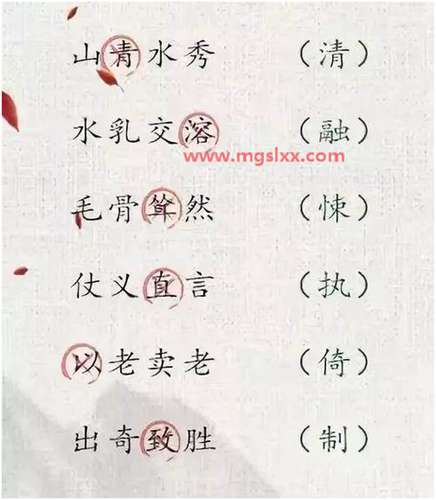 山青水秀 (清)
水乳交溶 (融)
www.mgslxx.com
毛骨耸然 (悚)
仗义直言 (执)
以老卖老 (倚)
出奇致胜 (制)